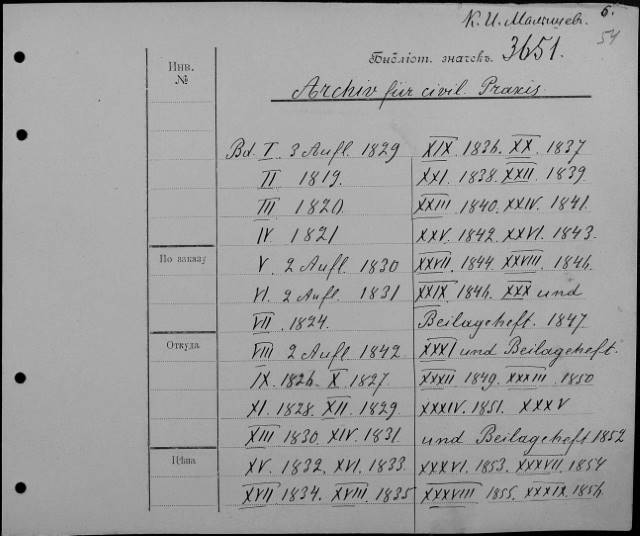 К. И. Малышев. 5.
54
Библіот. значекъ. 3651.
Инв.
№
Archiv für civil. Praxis
Bd. I. 3 Aufl. 1829
II 1819.
III 1820.
IV 1821
V. 2 Aufl. 1830
VI. 2 Aufl. 1831
VII. 1824.
VIII 2 Aufl. 1842.
IX. 1826. X. 1827.
XI. 1828. XII. 1829.
XIII 1830. XIV. 1831.
XV. 1832. XVI. 1833.
XVII 1834. XVIII. 1835
XIX. 1836. XX. 1837
XXI. 1838. XXII. 1839
XXIII 1840. XXIV. 1841.
XXV. 1842. XXVI. 1843.
XXVII. 1844. XXVIII.
XXIX. 1846. XXX und
Beilageheft. 1847
XXXI und Beilageheft.
XXXII 1849. XXXIII. 1850
XXXIV. 1851. XXXV
und Beilageheft 1852
XXXVI. 1853. XXXVII. 1854
XXXVIII 1855. XXXIX. 1856.
По заказу
Откуда
Цѣна